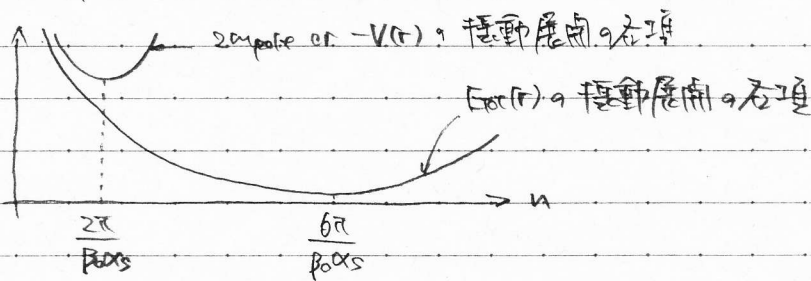 2mpole or -V(r) の 摂動展開の各項
Etot(r) の 摂動展開の各項
n
2π/β₀αs
6π/β₀αs